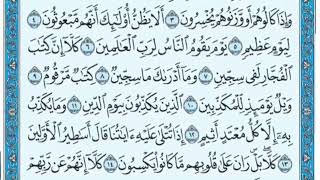 وَإِذَا كَالُوهُمْ أَو وَّزَنُوهُمْ يُخْسِرُونَ ٣ أَلَا يَظُنُّ أُولَٰٓئِكَ أَنَّهُم مَّبْعُوثُونَ ٤
لِيَوْمٍ عَظِيمٍ ٥ يَوْمَ يَقُومُ النَّاسُ لِرَبِّ الْعَالَمِينَ ٦ كَلَّآ إِنَّ كِتَٰبَ
الْفُجَّارِ لَفِى سِجِّينٍ ٧ وَمَآ أَدْرَىٰكَ مَا سِجِّينٌ ٨ كِتَٰبٌ مَّرْقُومٌ ٩
وَيْلٌ يَوْمَئِذٍ لِّلْمُكَذِّبِينَ ١٠ الَّذِينَ يُكَذِّبُونَ بِيَوْمِ الدِّينِ ١١ وَمَا يُكَذِّبُ
بِهِۦٓ إِلَّا كُلُّ مُعْتَدٍ أَثِيمٍ ١٢ إِذَا تُتْلَىٰ عَلَيْهِ ءَايَٰتُنَا قَالَ أَسَٰطِيرُ الْأَوَّلِينَ
١٣ كَلَّا ۖ بَلْ ۜ رَانَ عَلَىٰ قُلُوبِهِم مَّا كَانُوا يَكْسِبُونَ ١٤ كَلَّآ إِنَّهُمْ عَن رَّبِّهِمْ